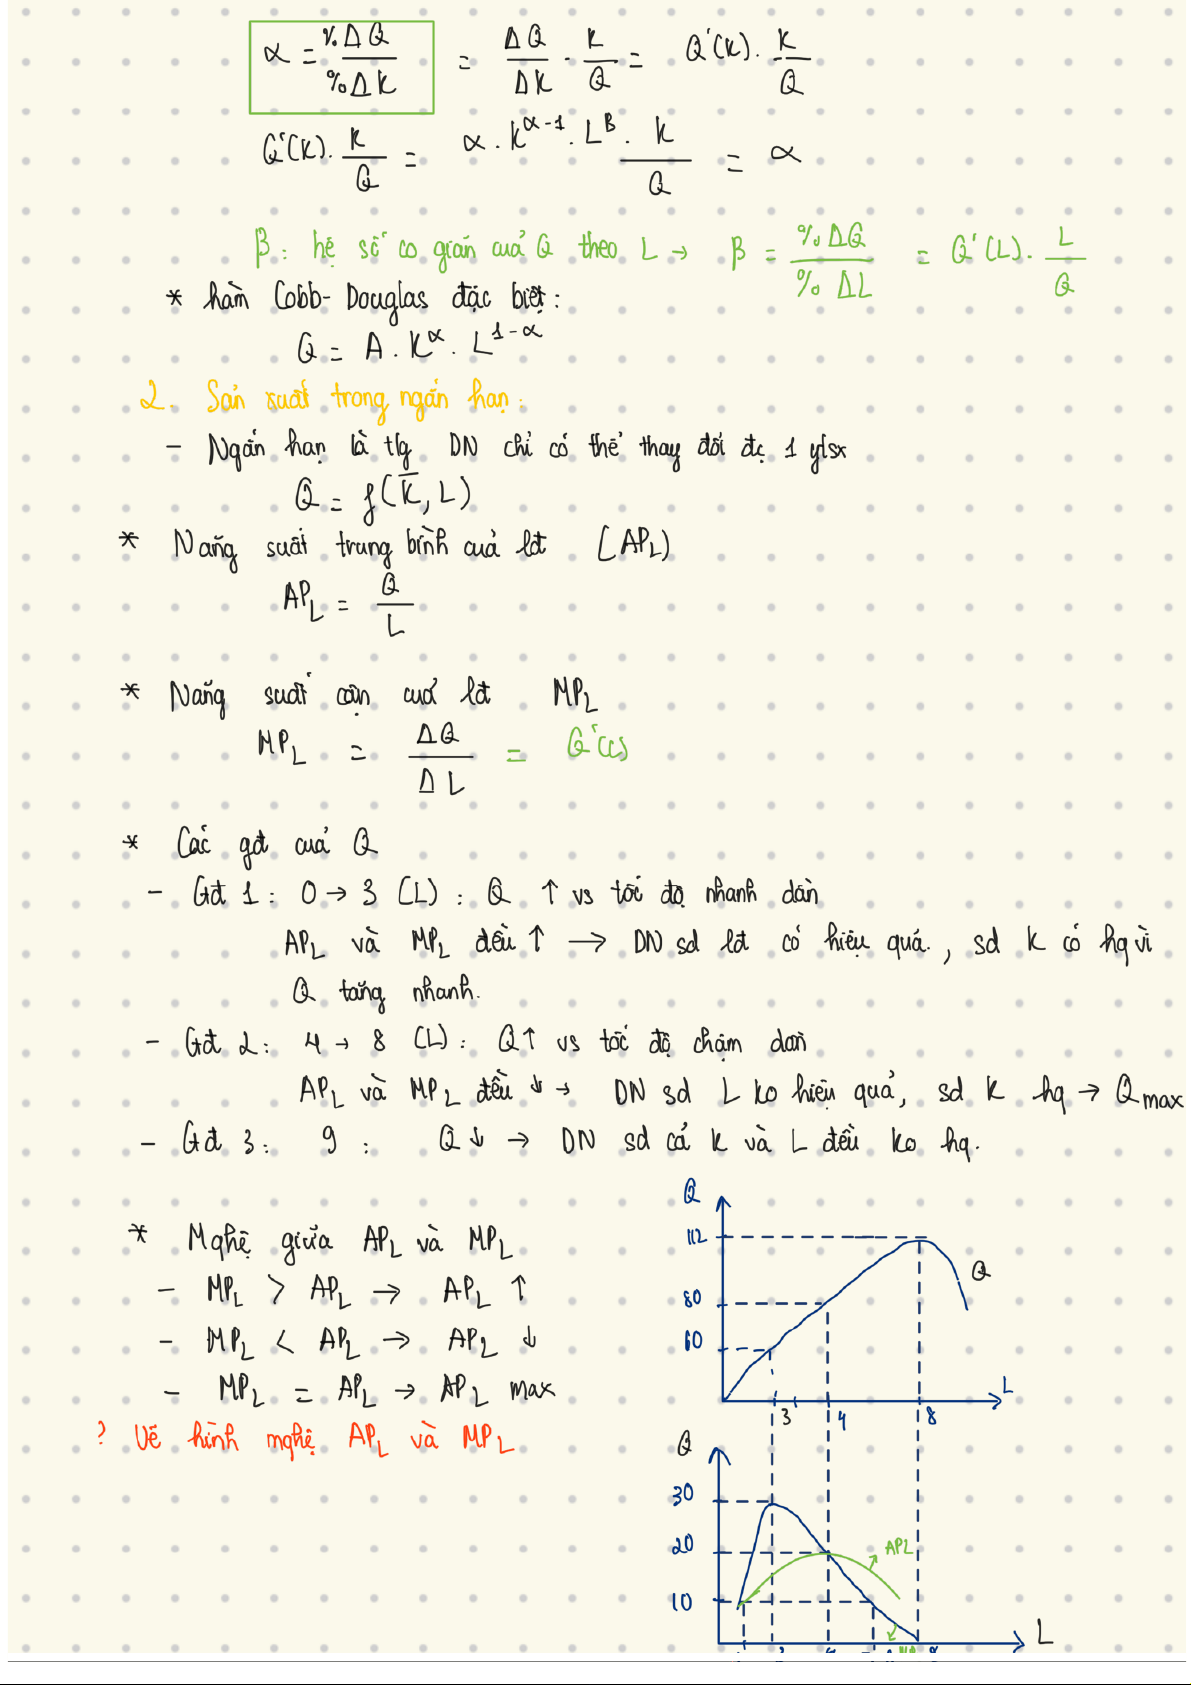 α = %ΔQ / %ΔK = ΔQ/ΔK . K/Q = Q'(K) . K/Q
Q'(K) . K/Q = α . K^(α-1) . L^β . K / Q = α
β : hệ số co giãn của Q theo L → β = %ΔQ / %ΔL = Q'(L) . L/Q
* hàm Cobb-Douglas đặc biệt :
Q = A . K^α . L^(1-α)
2. Sản xuất trong ngắn hạn :
- Ngắn hạn là t/g DN chỉ có thể thay đổi đc 1 ytsx
Q = f(K̄, L)
* Năng suất trung bình của lđ (AP_L)
AP_L = Q / L
* Năng suất cận của lđ MP_L
MP_L = ΔQ / ΔL = Q'(L)
* Các gđ của Q
- Gđ 1 : 0 → 3 (L) : Q ↑ vs tốc độ nhanh dần
AP_L và MP_L đều ↑ → DN sd lđ có hiệu quả , sd K có hq vì
Q tăng nhanh.
- Gđ 2 : 4 → 8 (L) : Q ↑ vs tốc độ chậm dần
AP_L và MP_L đều ↓ → DN sd L ko hiệu quả, sd K hq → Q max
- Gđ 3 : 9 : Q ↓ → DN sd cả K và L đều ko hq.
* Mqhệ giữa AP_L và MP_L
- MP_L > AP_L → AP_L ↑
- MP_L < AP_L → AP_L ↓
- MP_L = AP_L → AP_L max
? Vẽ hình mqhệ AP_L và MP_L
Q
112
80
60
Q
L
3
4
8
Q
30
20
10
APL
L